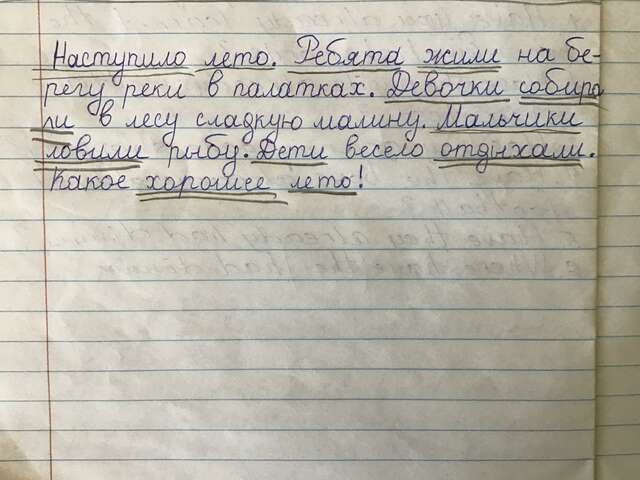 Наступило лето. Ребята жили на бе-
регу реки в палатках. Девочки собира
ли в лесу сладкую малину. Мальчики
ловили рыбу. Дети весело отдыхали.
Какое хорошее лето!